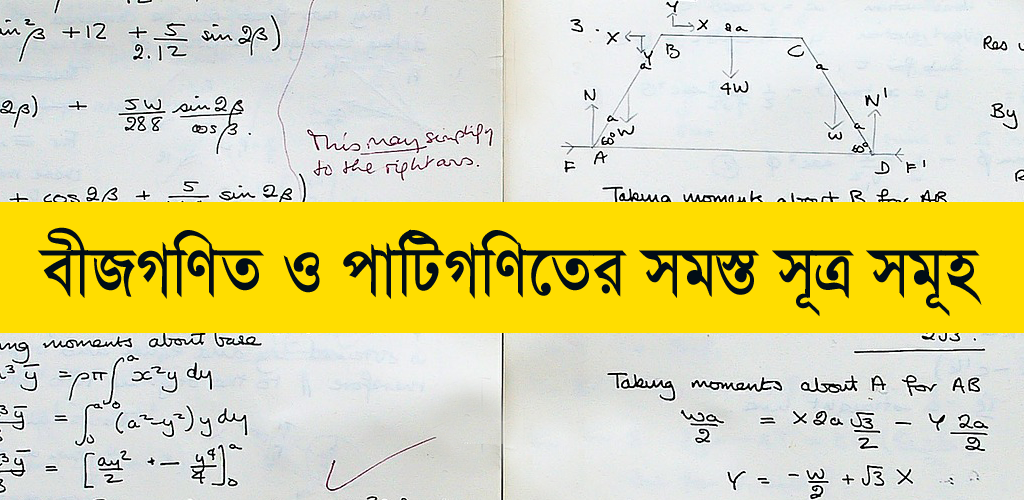 sin²β + 12 + 5/2.12 sin 2β)
2β) + 5W/288 sin 2β/cos β.
This may simplify
to the right ans.
+ cos 2β + 5 sin 2β)
3. X Y X 2a
Y B C
a a
4W
N a W W N' a
60° 60°
F A D F'
Res
By
R
Taking moments about B for AB
বীজগণিত ও পাটিগণিতের সমস্ত সূত্র সমূহ
moments about base
³ȳ = ρπ∫₀ᵃ x²y dy
³ȳ = ∫₀ᵃ (a²-y²) y dy
³ȳ = [ay²/2 - y⁴/4]₀ᵃ
2√3.
Taking moments about A for AB
wa/2 = X 2a √3/2 - Y 2a/2
Y = -w/2 + √3 X